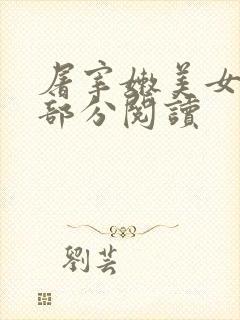 屠宰嫩美女
部分閱讀
劉芸